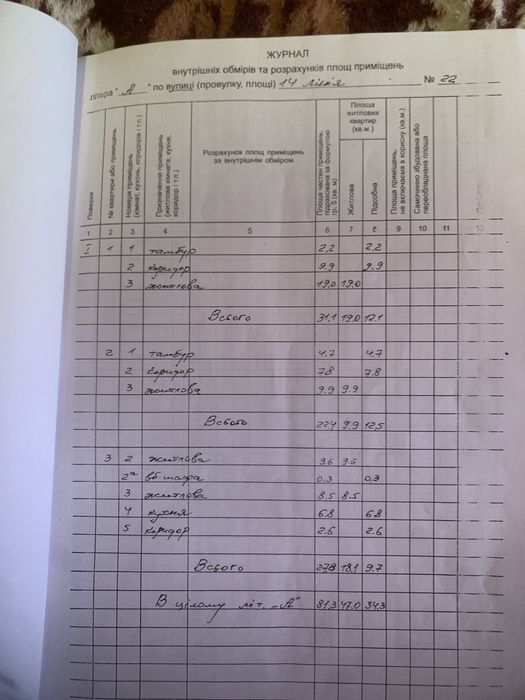 ЖУРНАЛ
внутрішніх обмірів та розрахунків площ приміщень
літера " А " по вулиці (провулку, площі) 14 лінія № 22
Поверхи
№ квартири або приміщень
Номери приміщень (кімнат, кухонь, коридорів і т.п.)
Призначення приміщень (житлова кімната, кухня, коридор і т.п.)
Розрахунок площ приміщень за внутрішнім обміром
Площа частин приміщень, підрахована за формулою гр. 5 (кв. м)
Площа житлових квартир (кв.м.)
Житлова
Підсобна
Площа приміщень, не включаема в корисну (кв.м.)
Самочинно збудована або переобладнана площа
1 2 3 4 5 6 7 8 9 10 11 12
I 1 1 тамбур 2,2 2.2
2 коридор 9.9 9.9
3 житлова 19.0 19.0
Всього 31.1 19.0 12.1
2 1 тамбур 4.7 4.7
2 коридор 7.8 7.8
3 житлова 9.9 9.9
Всього 22.4 9.9 12.5
3 2 житлова 9.6 9.6
2а вб. шафа 0.3 0.3
3 житлова 8.5 8.5
4 кухня 6.8 6.8
5 коридор 2.6 2.6
Всього 27.8 18.1 9.7
В цілому літ. „А" 81.3 47.0 34.3